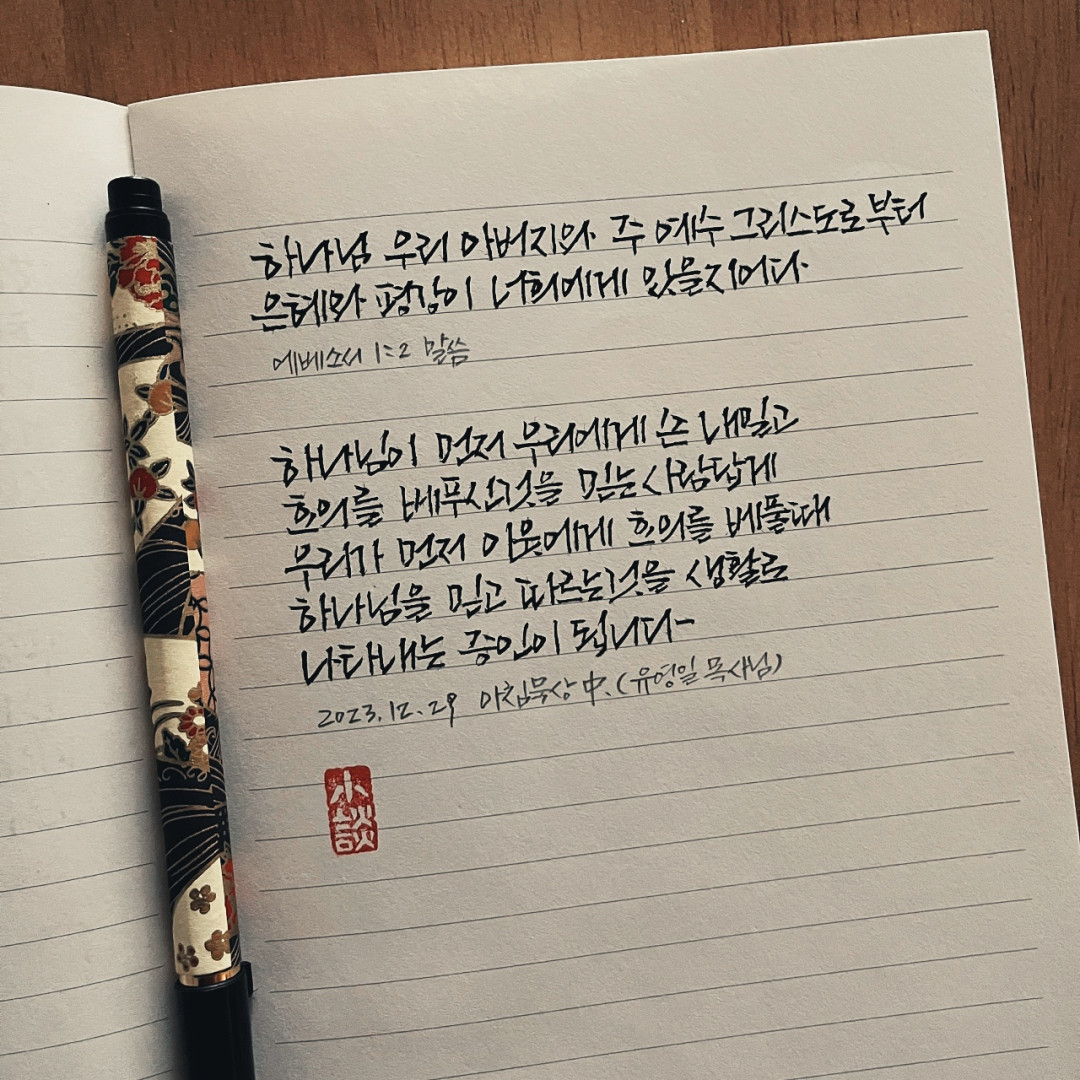 하나님 우리 아버지와 주 예수 그리스도로부터
은혜와 평강이 너희에게 있을지어다
에베소서 1:2 말씀
하나님이 먼저 우리에게 손 내밀고
호의를 베푸신것을 믿는 사람답게
우리가 먼저 이웃에게 호의를 베풀때
하나님을 믿고 따르는것을 생활로
나타내는 증인이 됩니다-
2023.12.29 아침묵상 中.(유영일 목사님)
小
談